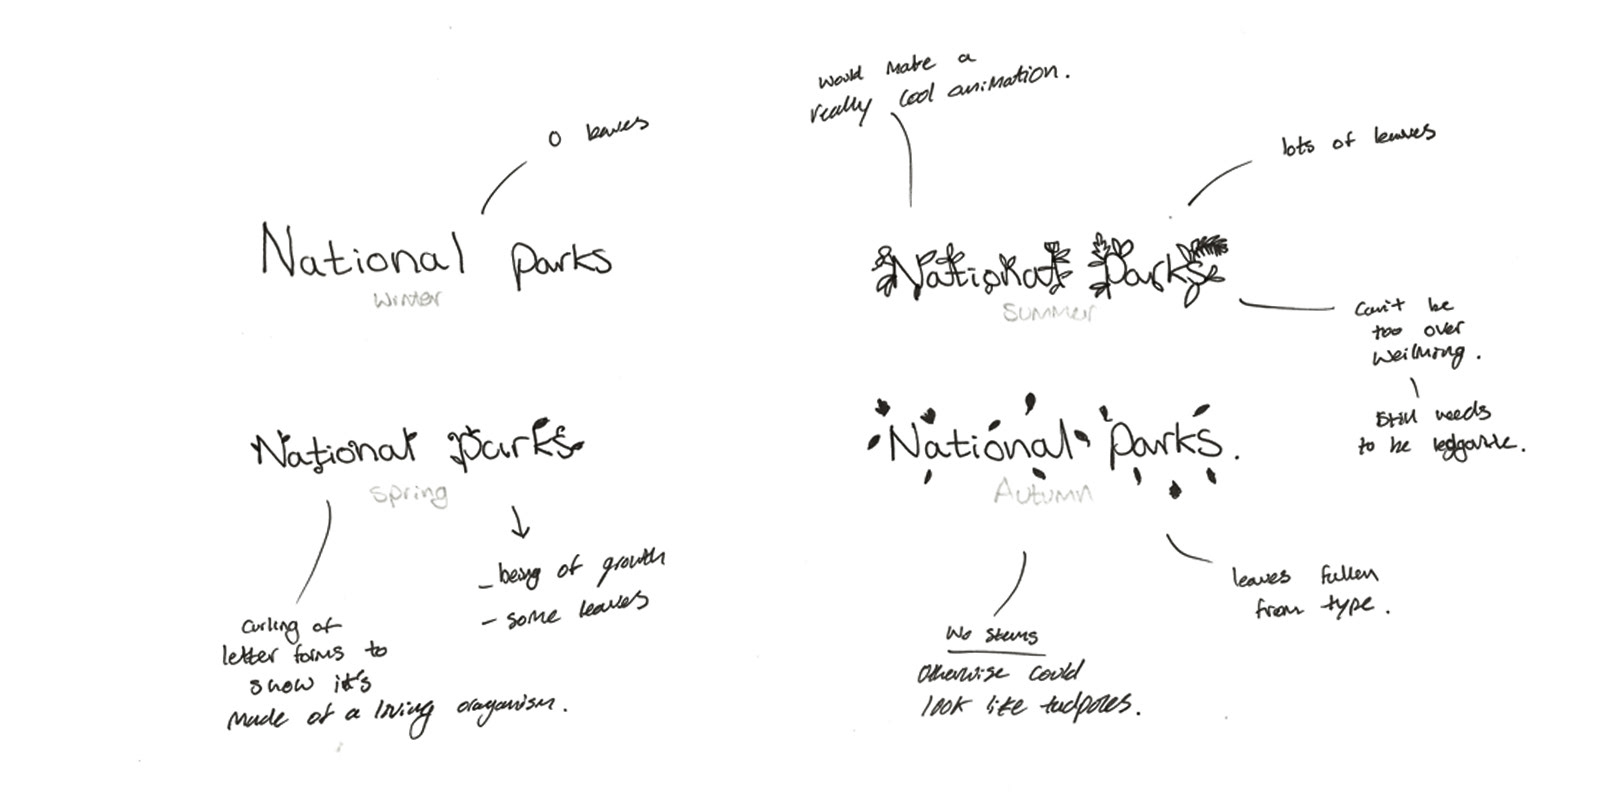 0 leaves
National Parks
Winter
would make a
really cool animation.
lots of leaves
National Parks
Summer
can't be
too over
weilming.
still needs
to be leggable.
National Parks
Spring
curling of
letter forms to
show it's
made of a living oraganism.
- being of growth
- some leaves
National Parks.
Autumn
No stems
Otherwise could
look like tadpoles.
leaves fallen
from type.